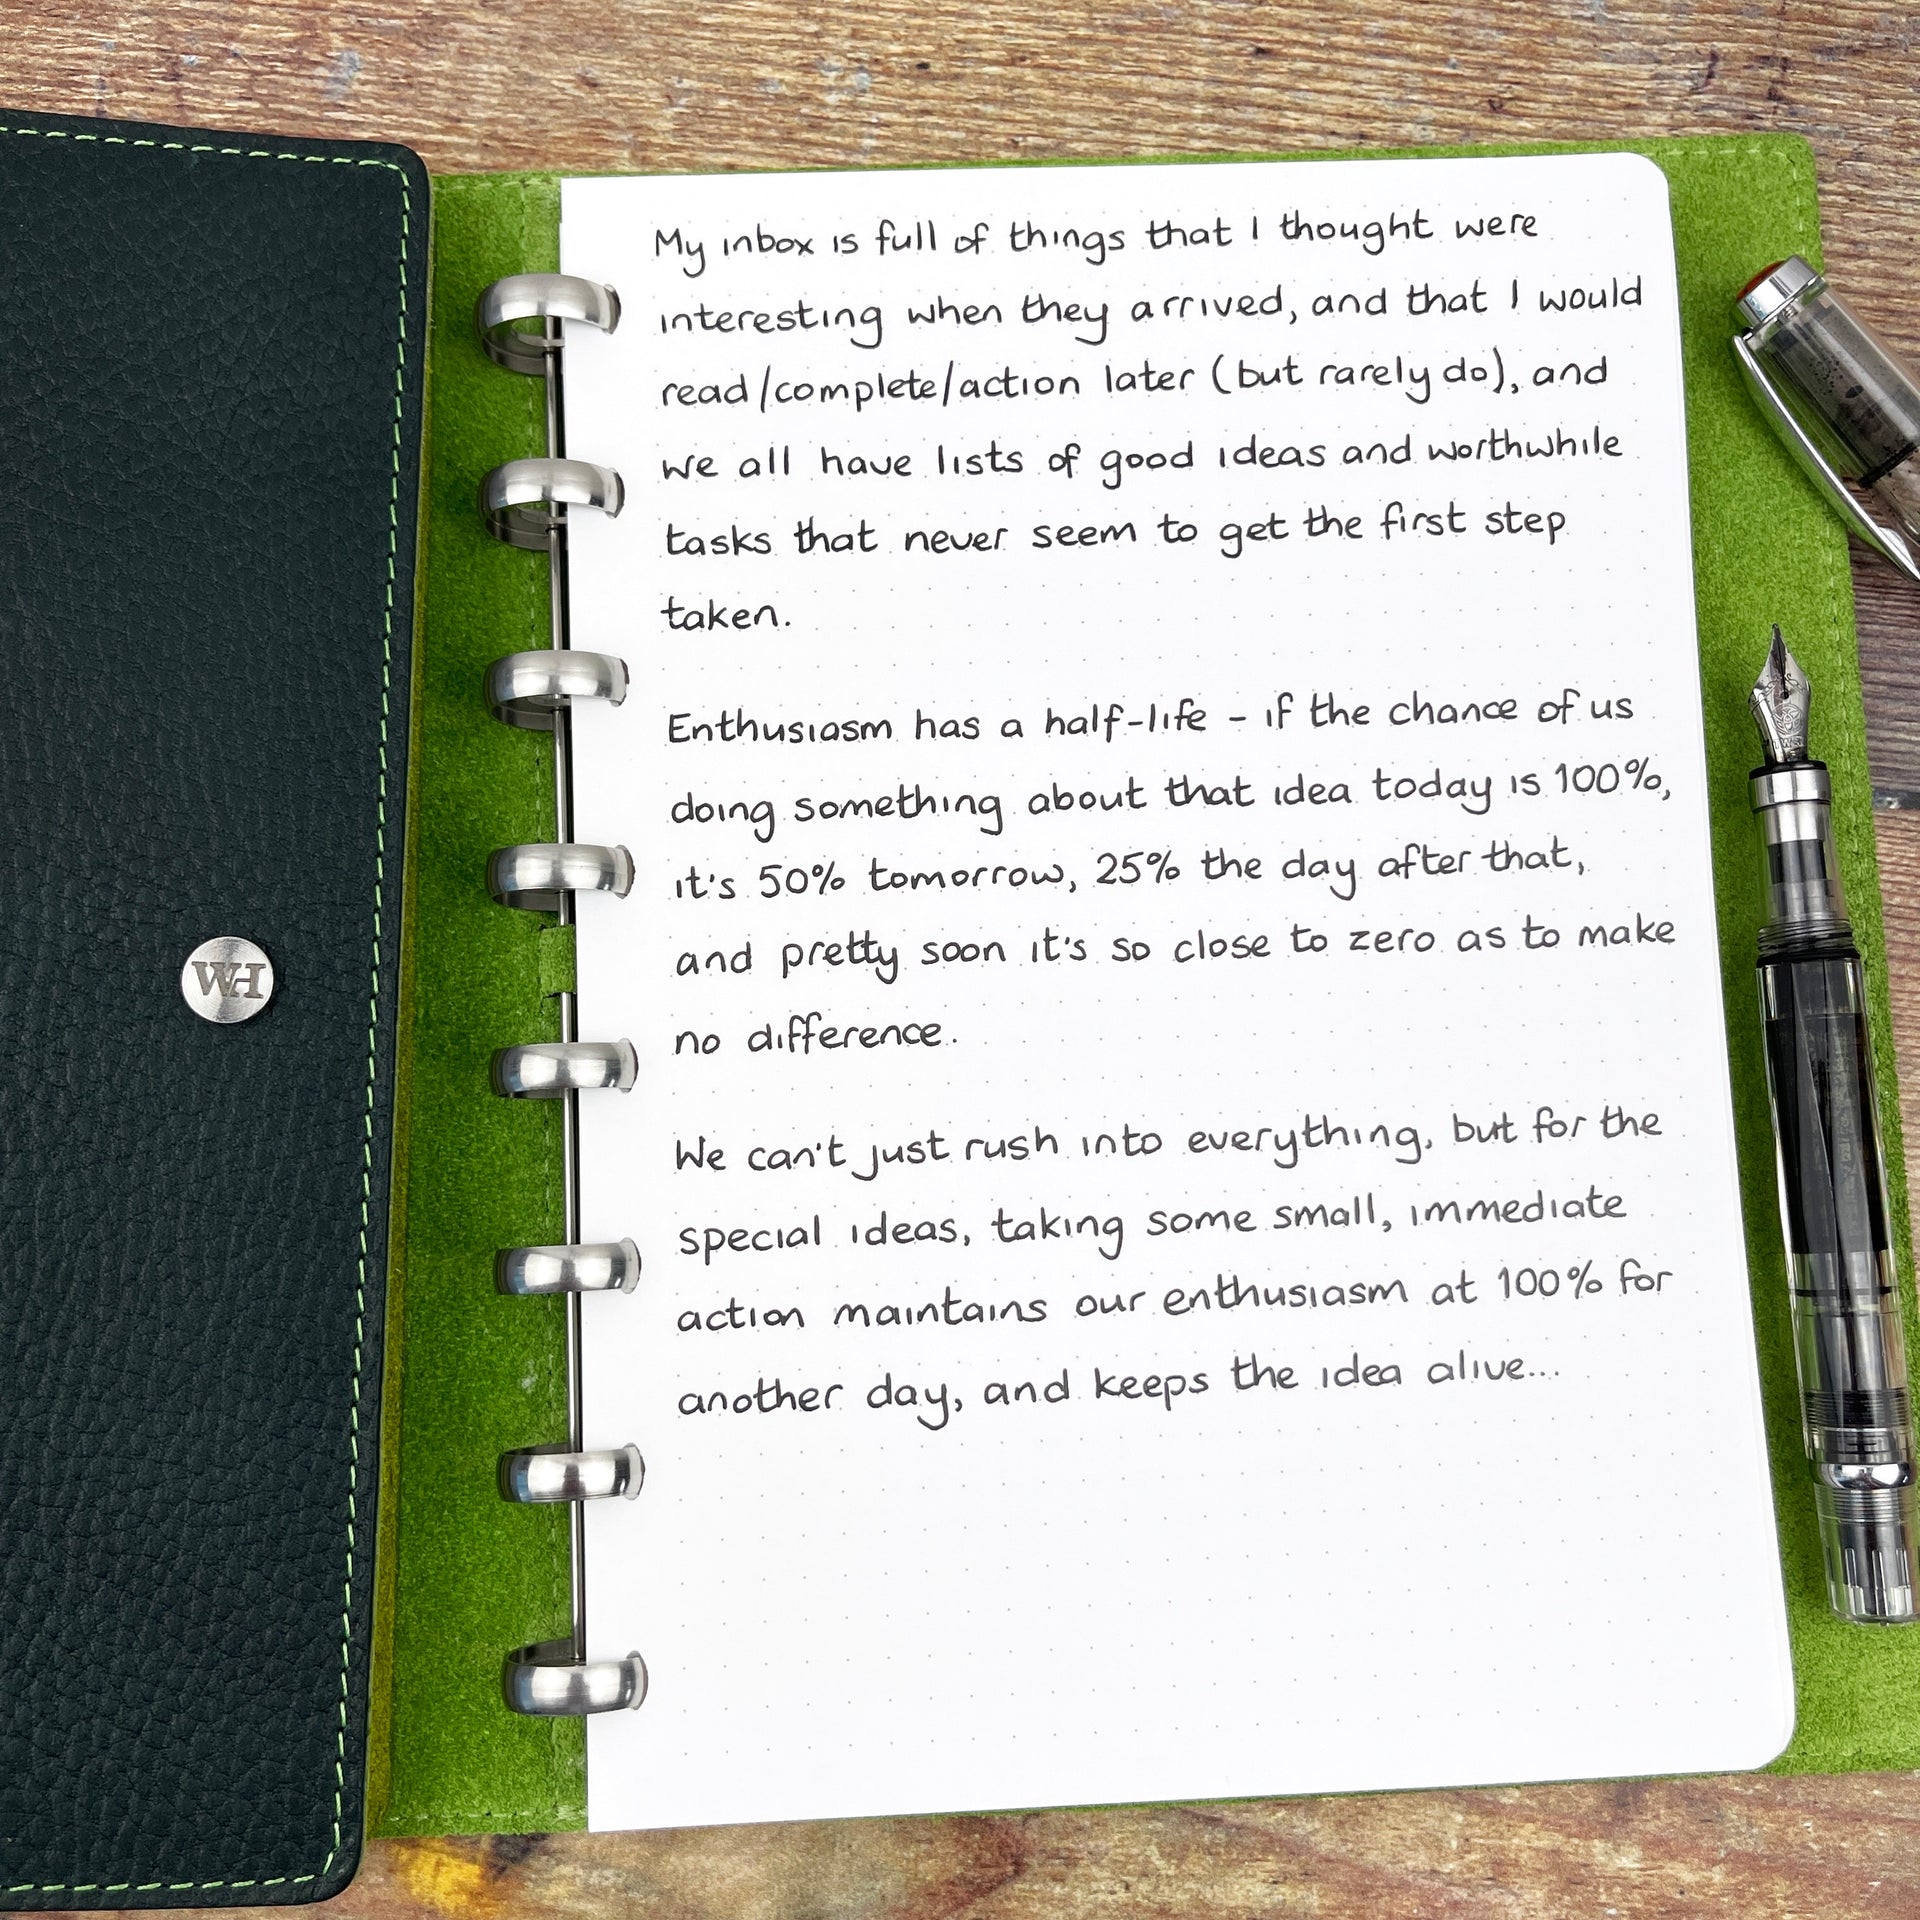 My inbox is full of things that I thought were
interesting when they arrived, and that I would
read/complete/action later (but rarely do), and
we all have lists of good ideas and worthwhile
tasks that never seem to get the first step
taken.
Enthusiasm has a half-life - if the chance of us
doing something about that idea today is 100%,
it's 50% tomorrow, 25% the day after that,
and pretty soon it's so close to zero as to make
no difference.
We can't just rush into everything, but for the
special ideas, taking some small, immediate
action maintains our enthusiasm at 100% for
another day, and keeps the idea alive...
WH